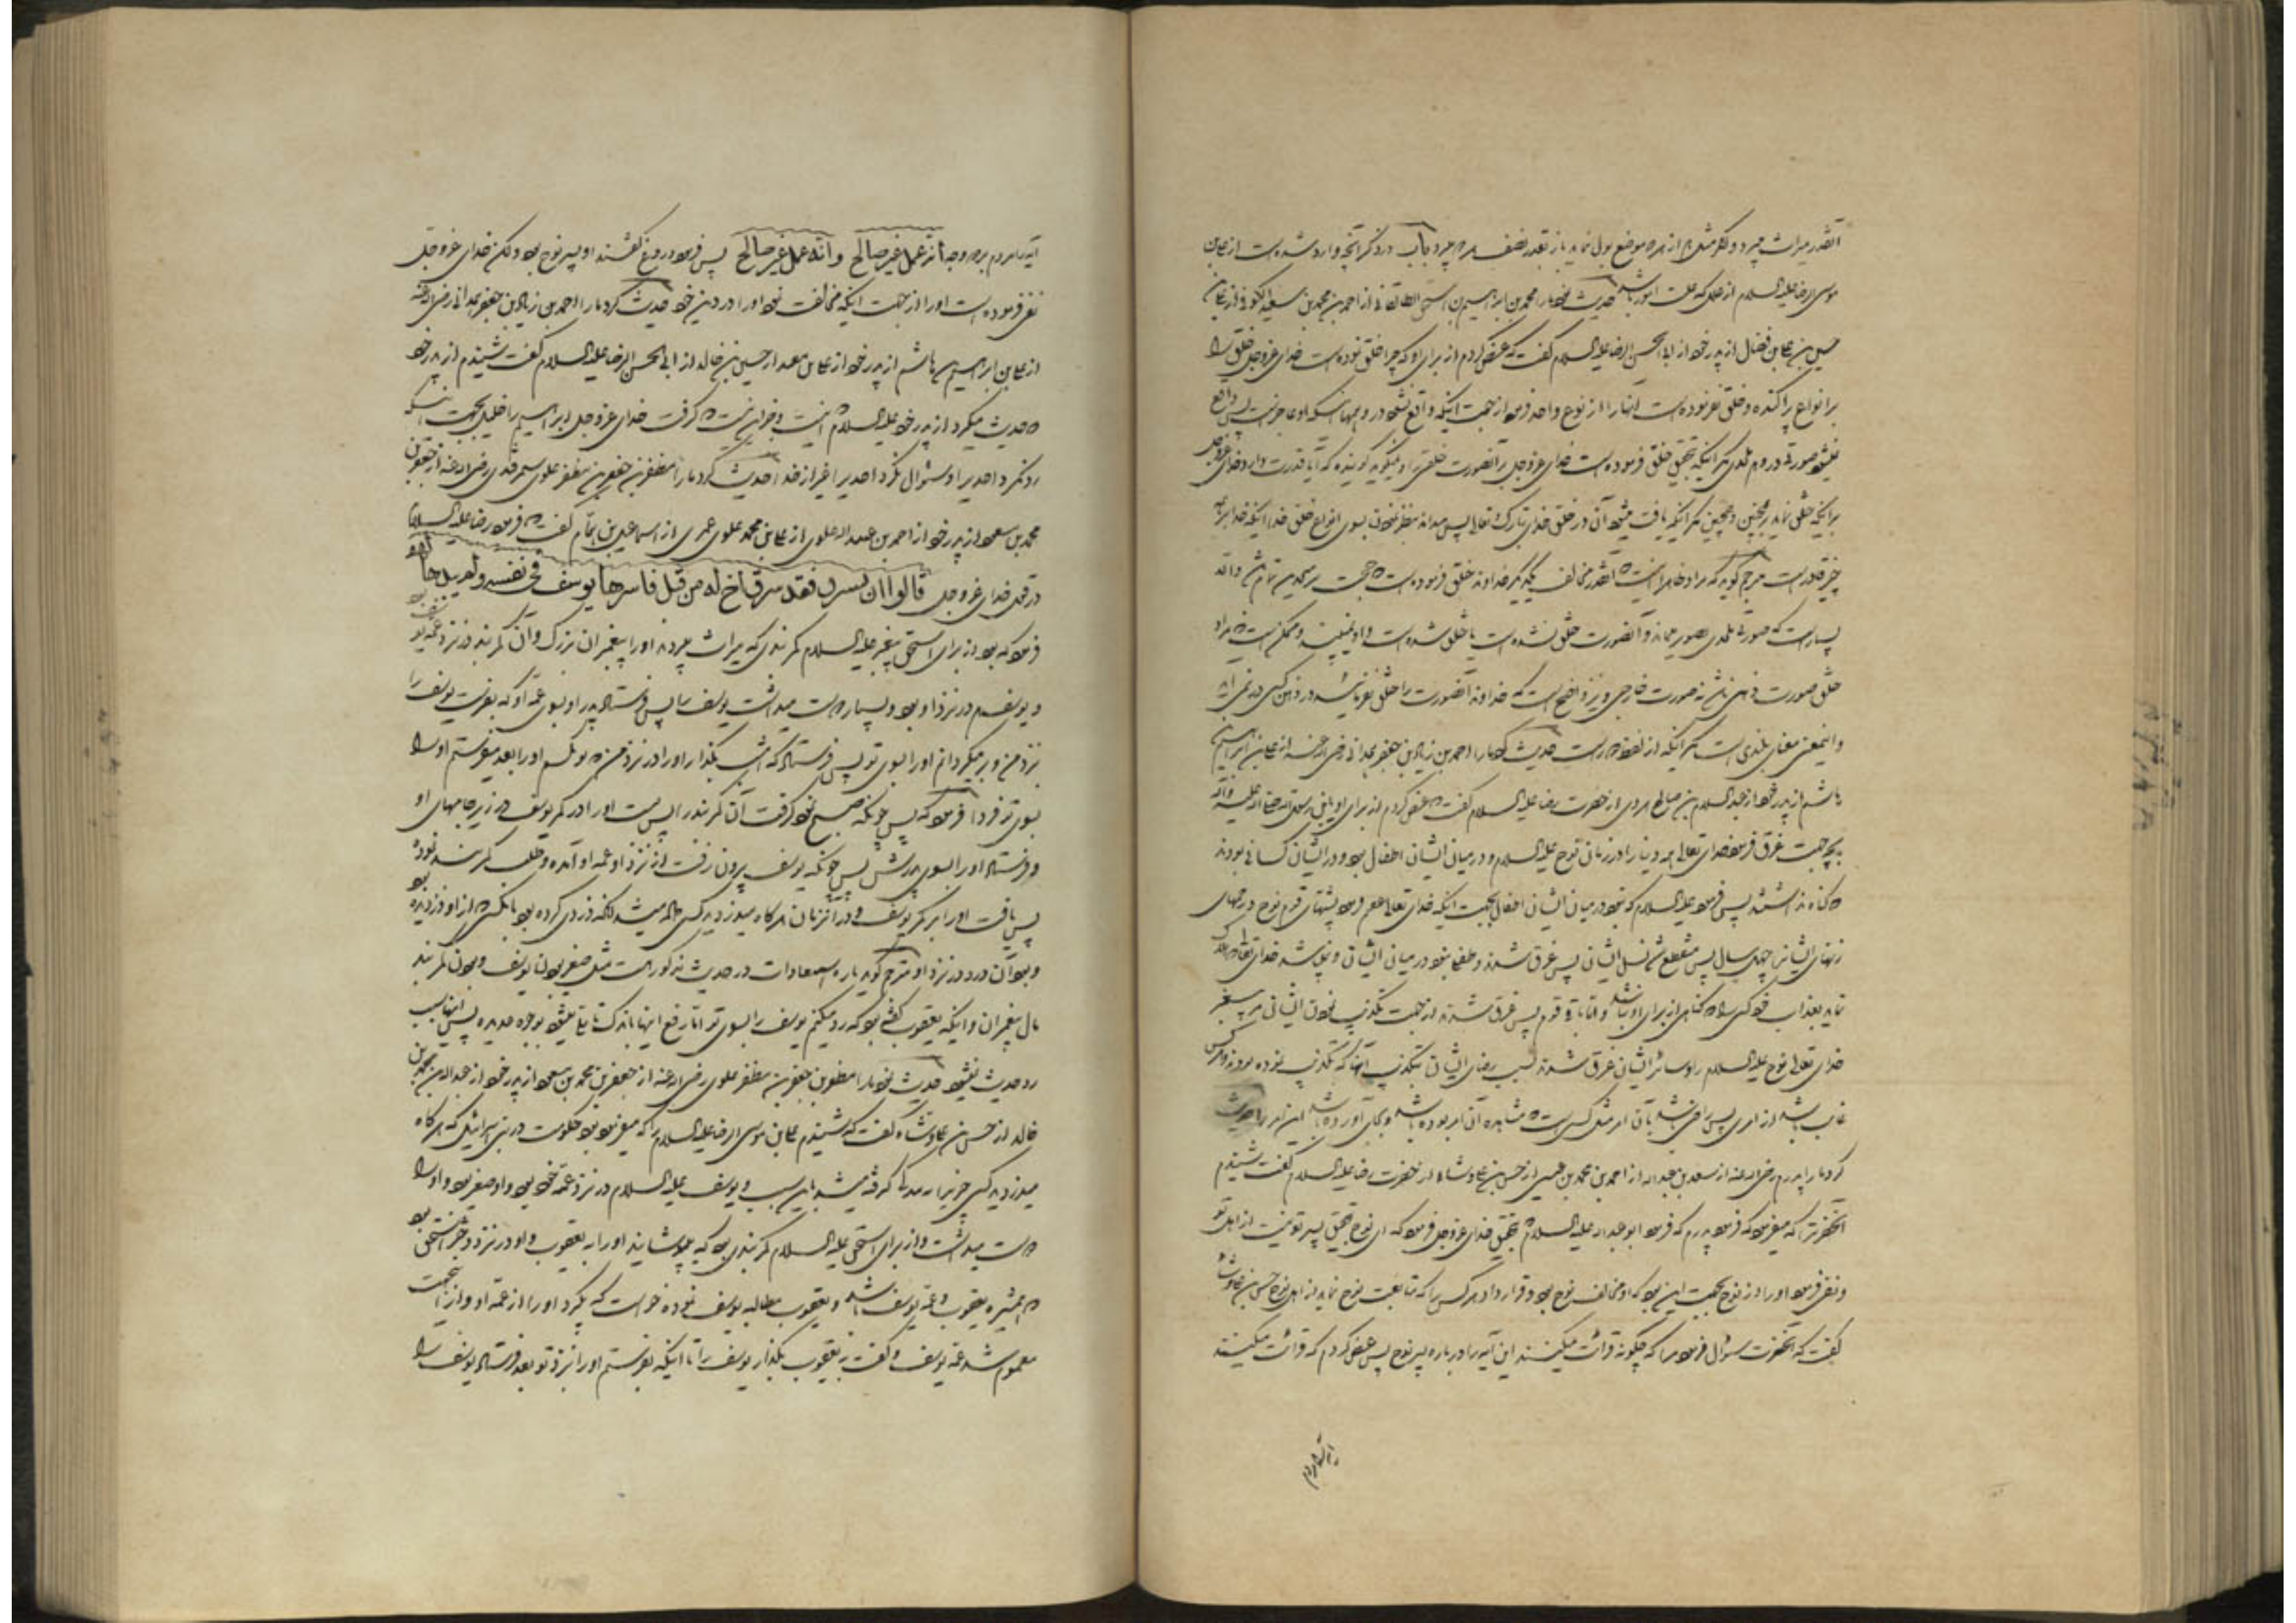 آنقدر میراث میبرد و اگر مثل از هر دو موضع بول نماید باز بقدر نصف هر دو میبرد باب در ذکر آنچه وارد شده است از علی بن
موسی الرضا علیه السلام از عللی که علت امور باشد حدیث نمود ما را محمد بن ابراهیم بن اسحق الطالقانی از احمد بن محمد بن سعید الکوفی از علی بن
حسن بن علی بن فضال از پدر خود از ابی الحسن الرضا علیه السلام گفت که عرض کردم از برای او که چرا خلق نموده است خدای عزوجل خلق را
بر انواع پراکنده و خلق نفرموده است آنها را از نوع واحد فرمود از جهت اینکه واقع نشود در وهمها اینکه او عاجز است پس واقع
نمیشود صورتی در وهم ملحدی مگر اینکه بتحقیق خلق فرموده است خدای عزوجل بر آنصورت خلقی را و نمیگوید گوینده که آیا قدرت دارد خدای عزوجل
بر اینکه خلق نماید بر چنین و چنین مگر اینکه یافت میشود آن در خلق خدای تبارک و تعالی پس میداند بنظر نمودن بسوی انواع خلق خدا اینکه خدا بر همه
چیز قادر است مترجم گوید که مراد ظاهرا اینست که آنقدر مخالف یکدیگر خداوند خلق فرموده است که حجت بر ملحدین تمام شد والا
بسیار است که صورتی ملحدی تصور مینماید و آنصورت خلق نشده است یا خلق شده است و او نمی‌بیند و ممکن است که مراد
خلق صورت ذهنی باشد نه صورت خارجی و نیز واضح است که خداوند آنصورت را خلق نفرماید در ذهن کسی در نمی‌آید
و اینمعنی معنای بلندی است مگر اینکه از لفظ دور است حدیث کرد ما را احمد بن زیاد بن جعفر همدانی رضی الله عنه از علی بن ابراهیم بن
هاشم از پدر خود از عبدالسلام بن صالح هروی از حضرت رضا علیه السلام گفت که عرض کردم از برای او یابن رسول الله صلی الله علیه و آله
بچه جهت غرق فرمود خدای تعالی همه دنیا را در زمان نوح علیه السلام و در میان ایشان اطفال بود و در ایشان کسانی بودند
که گناه نداشتند پس فرمود علیه السلام که نبود در میان ایشان اطفال بجهت اینکه خدای تعالی عقیم فرمود پشتهای قوم نوح و رحمهای
زنهای ایشانرا چهل سال پس منقطع شد نسل ایشان پس غرق شدند و طفلی نبود در میان ایشان و نمیباشد خدای تعالی که هلاک
نماید بعذاب خود کسی را که گناهی از برای او نباشد و اما باقی قوم پس غرق شدند از جهت تکذیب نمودن ایشان مر پیغمبر
خدای تعالی نوح علیه السلام را و سائر ایشان غرق شدند بسبب رضای ایشان بتکذیب آنها که تکذیب نموده بودند و هر کس
غایب باشد از امری پس راضی باشد بآن امر مثل کسی است که مشاهده آن امر نموده باشد و بجای آورده باشد این امر را حدیث
کرد ما را پدرم رضی الله عنه از سعد بن عبدالله از احمد بن محمد بن عیسی از حسن بن علی وشاء از حضرت رضا علیه السلام گفت شنیدم
آنحضرترا که میفرمود که فرمود پدرم که فرمود ابوعبدالله علیه السلام بتحقیق خدای عزوجل فرمود که ای نوح بتحقیق پسر تو نیست از اهل تو
و نفی فرمود او را از نوح بجهت این بود که او مخالف نوح بود و قرار داد هر کس را که متابعت نوح نماید از اهل نوح حسن بن علی وشاء
گفت که آنحضرت سؤال فرمود مرا که چگونه قرائت میکنند این آیه را درباره پسر نوح پس عرض کردم که قرائت میکنند
آیه را مردم بر دو وجه انه عمل غیر صالح و انه عمل غیر صالح پس فرمود دروغ گفتند او پسر نوح بود ولکن خدای عزوجل
نفی فرموده است او را از جهت اینکه مخالفت نمود او را در دین خود حدیث کرد ما را احمد بن زیاد بن جعفر همدانی رضی الله عنه
از علی بن ابراهیم بن هاشم از پدر خود از علی بن معبد از حسین بن خالد از ابی الحسن الرضا علیه السلام گفت شنیدم از پدر خود
که حدیث میکرد از پدر خود علیه السلام که گرفت خدای عزوجل ابراهیم را خلیل بجهت اینکه
رد نکرد احدیرا و سؤال نکرد احدیرا غیر از خدا حدیث کرد ما را مظفر بن جعفر بن مظفر علوی سمرقندی رضی الله عنه از جعفر بن
محمد بن مسعود از پدر خود از احمد بن عبدالله علوی از علی بن محمد علوی عمری از اسماعیل بن همام گفت که فرمود رضا علیه السلام
در قول خدای عزوجل قالوا ان یسرق فقد سرق اخ له من قبل فاسرها یوسف فی نفسه ولم یبدها لهم
فرمود که بود از برای اسحق پیغمبر علیه السلام کمربندی که میراث میبردند او را پیغمبران بزرگ و آن کمربند در نزد عمه یوسف بود
و یوسف هم در نزد او بود و بسیار دوست میداشت یوسف را پس فرستاد پدر او بسوی عمه او که بفرست یوسف را
نزد من و بر میگردانم او را بسوی تو پس فرستاد که امشب بگذار او را در نزد من که بو کنم او را بعد میفرستم او را
بسوی تو فردا فرمود که پس چونکه صبح نمود گرفت آن کمربند را پس بست او را در کمر یوسف در زیر جامهای او
و فرستاد او را بسوی پدرش پس چونکه یوسف بیرون رفت از نزد او عمه او آمده و طلب کمربند نمود
پس یافت او را بر کمر یوسف و در آنزمان هر گاه میدزدید کسی داده میشد آنکه دزدی کرده بود بآنکس که از او دزدیده بود
و بود آن دزد در نزد او مترجم گوید پاره استبعادات در حدیث مذکور است مثل صغیر بودن یوسف و بودن کمربند
مال پیغمبران و اینکه یعقوب گفته بود که رد میکنم یوسف را بسوی تو اما رفع اینها باندک تاملی میشود بوجوه عدیده پس اینها سبب
رد حدیث نمیشود حدیث نمود ما را مظفر بن جعفر بن مظفر علوی رضی الله عنه از جعفر بن محمد بن مسعود از پدر خود از عبدالله بن محمد بن
خالد از حسن بن علی وشاء گفت که شنیدم علی بن موسی الرضا علیه السلام را که میفرمود بود حکومت در بنی اسرائیل که هر گاه
میدزدید کسی چیزیرا گرفته میشد باین سبب و یوسف علیه السلام در نزد عمه خود بود و او صغیر بود و او را
دوست میداشت و از برای اسحق علیه السلام کمربندی بود که پوشانید او را به یعقوب و او در نزد دختر اسحق بود
که همشیره یعقوب و عمه یوسف باشد و یعقوب مطالبه یوسف نموده خواست که بگیرد او را از عمه او و از اینجهت
مغموم شد عمه یوسف و گفت به یعقوب بگذار یوسف را تا اینکه بفرستم او را نزد تو بعد فرستاد یوسف را